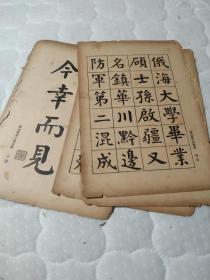 俄海大學畢業
碩士孫啟疆又
名鎮華川黔邊
防軍第二混成
今幸而見